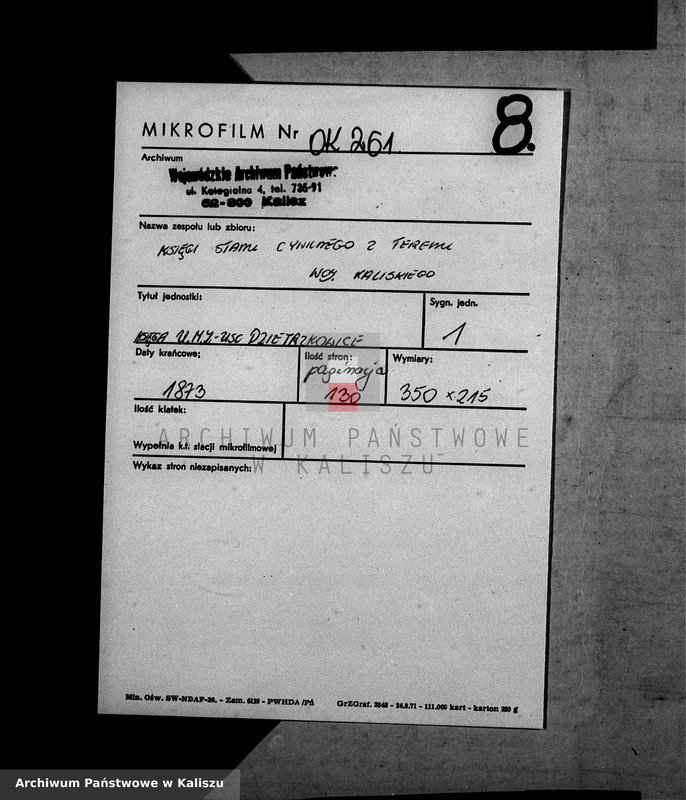 8.
MIKROFILM Nr OK 261
Archiwum
Wojewódzkie Archiwum Państwow.
ul. Kolegialna 4, tel. 736-91
62-800 Kalisz
Nazwa zespołu lub zbioru:
KSIĘGI STANU CYWILNEGO Z TERENU
WOJ. KALISKIEGO
Tytuł jednostki:
Sygn. jedn.
KSIĘGA U.M.Z-USC DZIETRZKOWICE
1
Daty krańcowe:
Ilość stron:
Wymiary:
paginacja
1873
130
350 x 215
Ilość klatek:
ARCHIWUM PAŃSTWOWE
Wypełnia k.t. stacji mikrofilmowej
W KALISZU
Wykaz stron niezapisanych:
Min. Ośw. SW-NDAP-20. - Zam. 6129 - PWHDA /Pń
GrZGraf. 3848 - 24.8.71 - 111.000 kart - karton 220 g
Archiwum Państwowe w Kaliszu